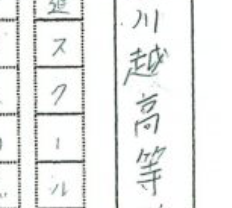 川越高等
進スクール